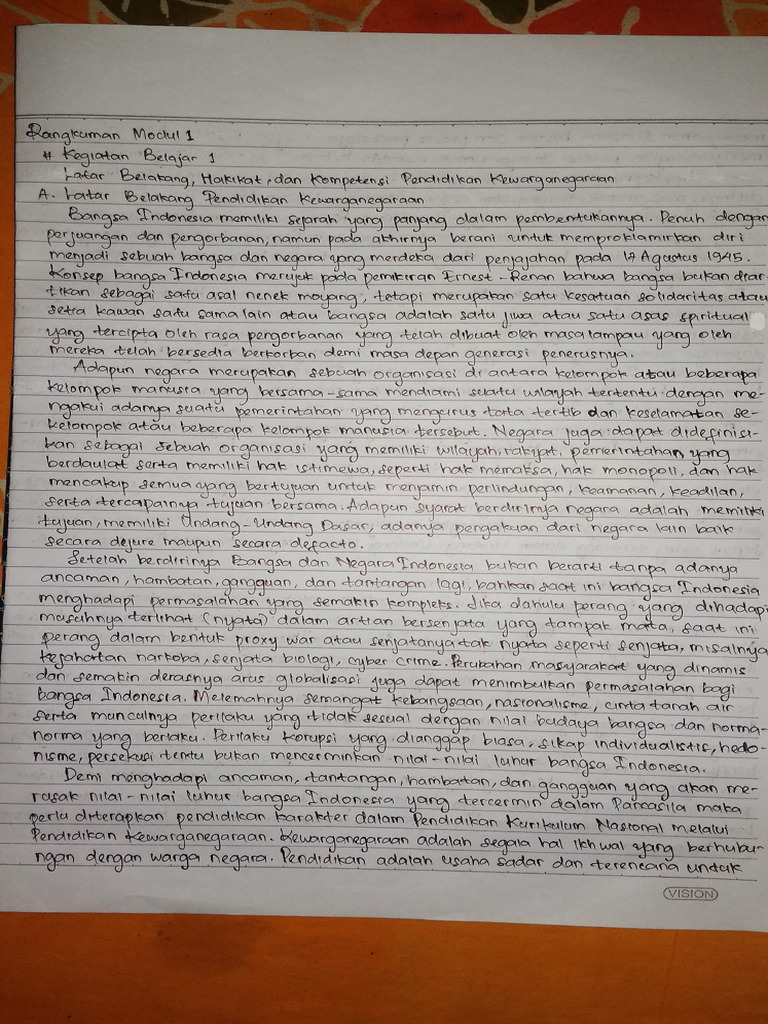 Rangkuman Modul 1
# Kegiatan Belajar 1
Latar Belakang, Hakikat, dan Kompetensi Pendidikan Kewarganegaraan
A. Latar Belakang Pendidikan Kewarganegaraan
Bangsa Indonesia memiliki sejarah yang panjang dalam pembentukannya. Penuh dengan
perjuangan dan pengorbanan, namun pada akhirnya berani untuk memproklamirkan diri
menjadi sebuah bangsa dan negara yang merdeka dari penjajahan pada 17 Agustus 1945.
Konsep bangsa Indonesia merujuk pada pemikiran Ernest-Renan bahwa bangsa bukan diar-
tikan sebagai satu asal nenek moyang, tetapi merupakan satu kesatuan solidaritas atau
setia kawan satu sama lain atau bangsa adalah satu jiwa atau satu asas spiritual
yang tercipta oleh rasa pengorbanan yang telah dibuat oleh masa lampau yang oleh
mereka telah bersedia berkorban demi masa depan generasi penerusnya.
Adapun negara merupakan sebuah organisasi di antara kelompok atau beberapa
kelompok manusia yang bersama-sama mendiami suatu wilayah tertentu dengan me-
ngakui adanya suatu pemerintahan yang mengurus tata tertib dan keselamatan se-
kelompok atau beberapa kelompok manusia tersebut. Negara juga dapat didefinisi-
kan sebagai sebuah organisasi yang memiliki wilayah, rakyat, pemerintahan yang
berdaulat serta memiliki hak istimewa, seperti hak memaksa, hak monopoli, dan hak
mencakup semua yang bertujuan untuk menjamin perlindungan, keamanan, keadilan,
serta tercapainya tujuan bersama. Adapun syarat berdirinya negara adalah memiliki
tujuan, memiliki Undang-Undang Dasar, adanya pengakuan dari negara lain baik
secara dejure maupun secara defacto.
Setelah berdirinya Bangsa dan Negara Indonesia bukan berarti tanpa adanya
ancaman, hambatan, gangguan, dan tantangan lagi, bahkan saat ini bangsa Indonesia
menghadapi permasalahan yang semakin kompleks. Jika dahulu perang yang dihadapi
musuhnya terlihat (nyata) dalam artian bersenjata yang tampak mata, saat ini
perang dalam bentuk proxy war atau senjatanya tak nyata seperti senjata, misalnya
kejahatan narkoba, senjata biologi, cyber crime. Perubahan masyarakat yang dinamis
dan semakin derasnya arus globalisasi juga dapat menimbulkan permasalahan bagi
bangsa Indonesia. Melemahnya semangat kebangsaan, nasionalisme, cinta tanah air
serta munculnya perilaku yang tidak sesuai dengan nilai budaya bangsa dan norma-
norma yang berlaku. Perilaku korupsi yang dianggap biasa, sikap individualistis, hedo-
nisme, persekusi tentu bukan mencerminkan nilai-nilai luhur bangsa Indonesia.
Demi menghadapi ancaman, tantangan, hambatan, dan gangguan yang akan me-
rusak nilai-nilai luhur bangsa Indonesia yang tercermin dalam Pancasila maka
perlu diterapkan pendidikan karakter dalam Pendidikan Kurikulum Nasional melalui
Pendidikan Kewarganegaraan. Kewarganegaraan adalah segala hal ikhwal yang berhubu-
ngan dengan warga negara. Pendidikan adalah usaha sadar dan terencana untuk
VISION